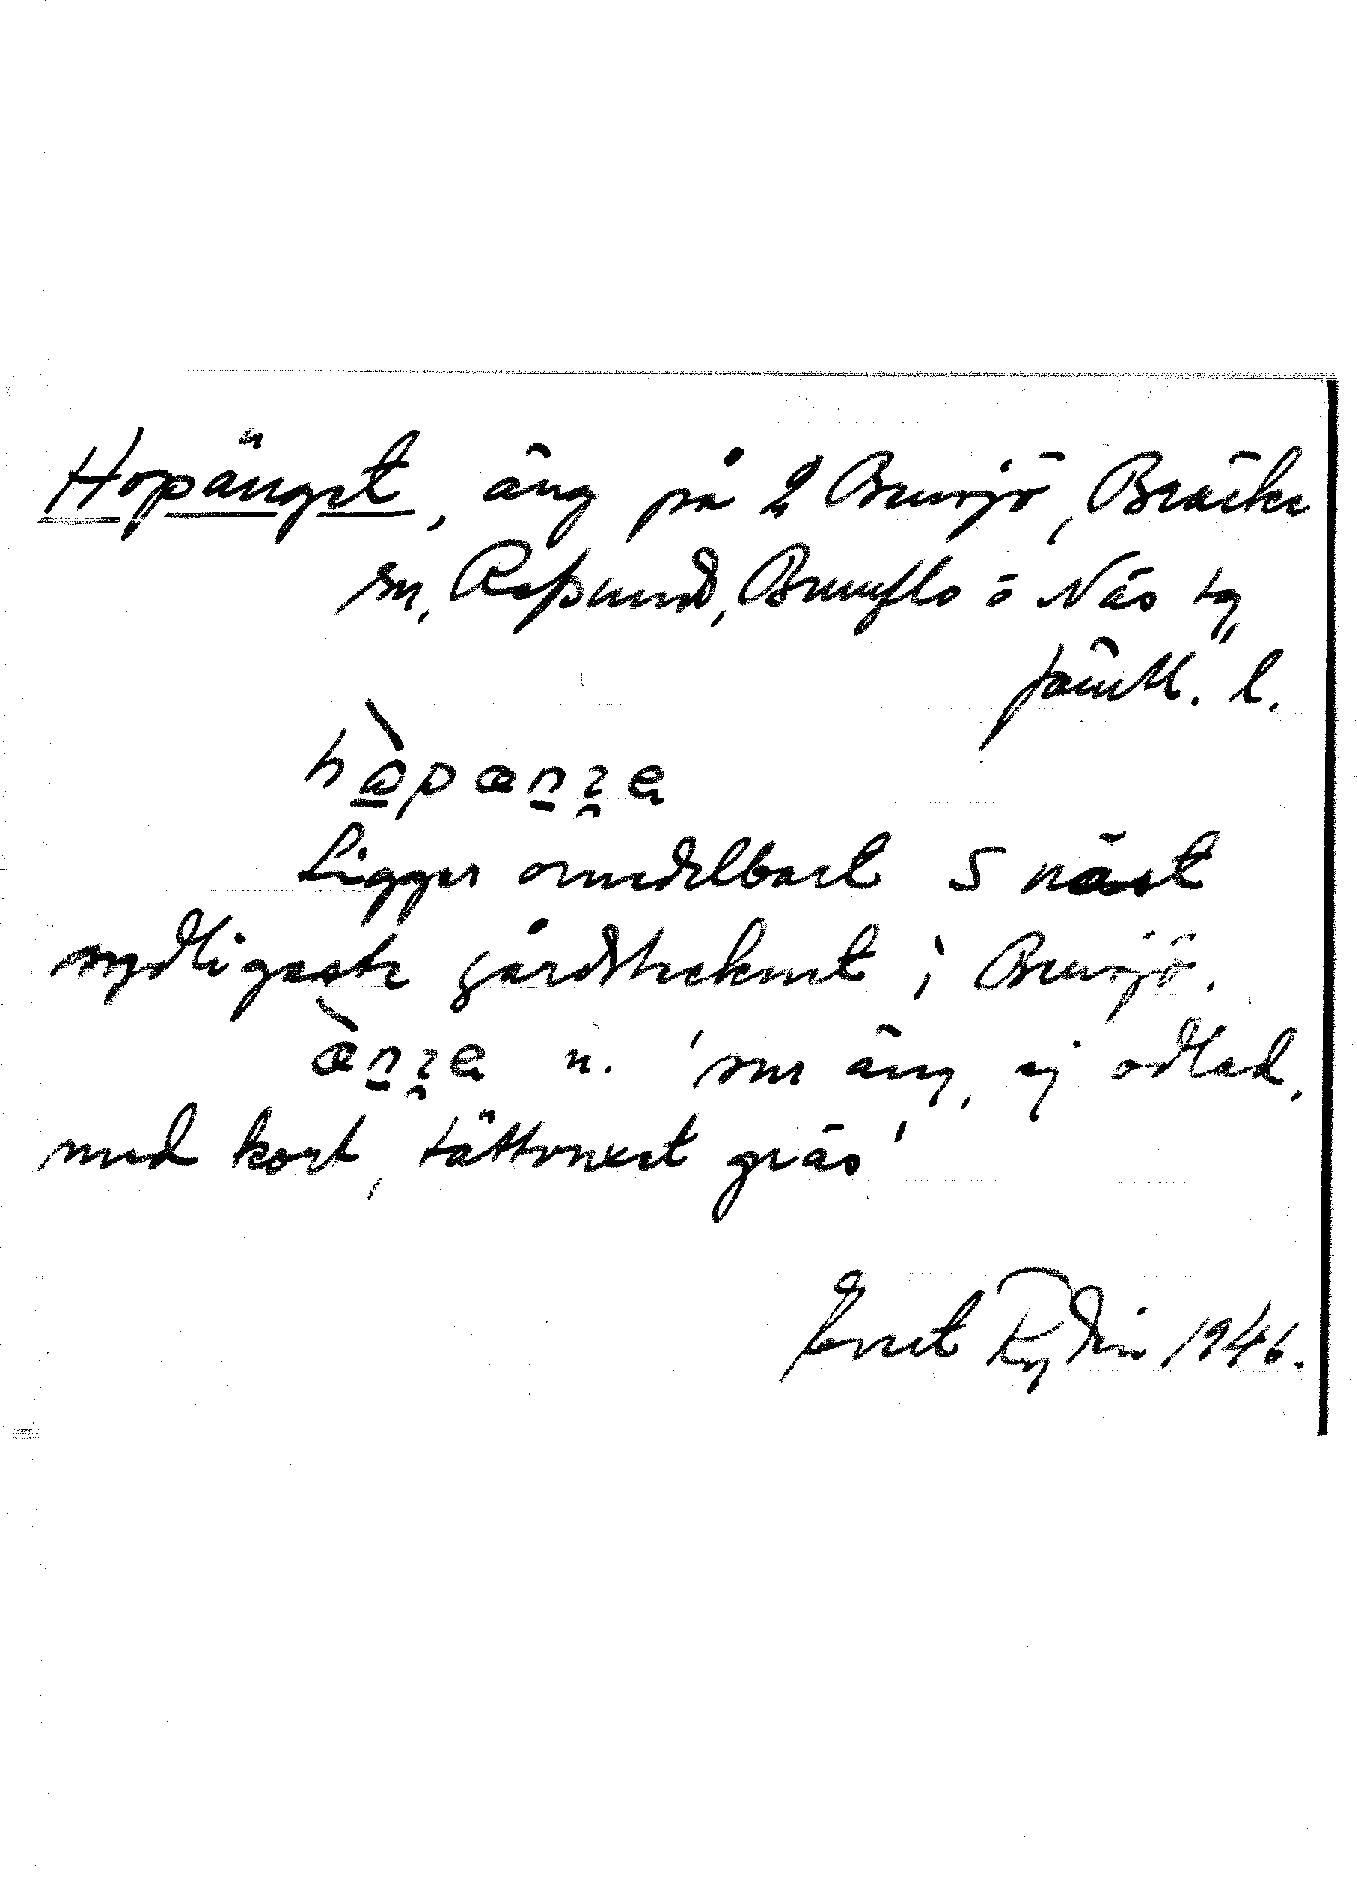 Hopänget, äng på 2 Bensjö, Bräcke
sn, Refsund, Brunflo o Näs tg
Jämtl. l.
hàpænʒe
Ligger omedelbart S näst
sydligaste gårdstecknet i Bensjö.
æ̀nʒe n. 'sur äng, ej odlad,
med kort, tättvuxet gräs'
Ernst Rydin 1946.